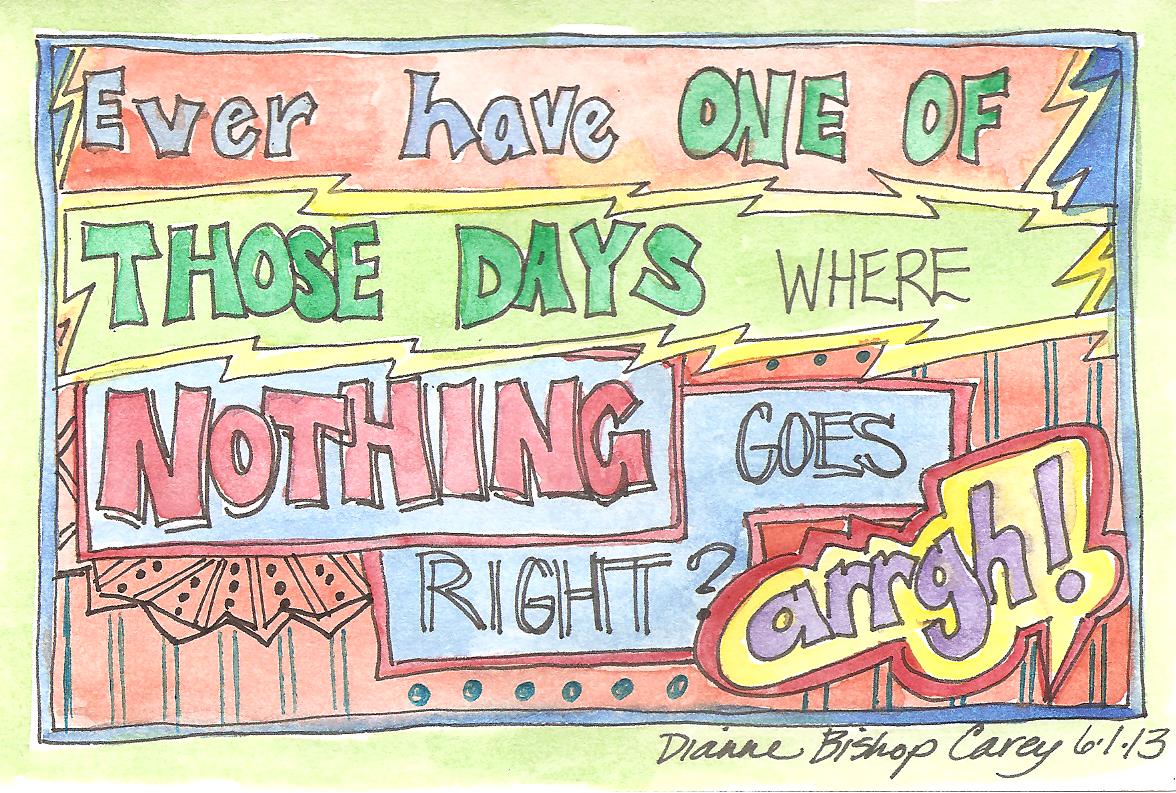 Ever have ONE OF
THOSE DAYS WHERE
NOTHING GOES
RIGHT?
arrgh!
Dianne Bishop Carey 6.1.13